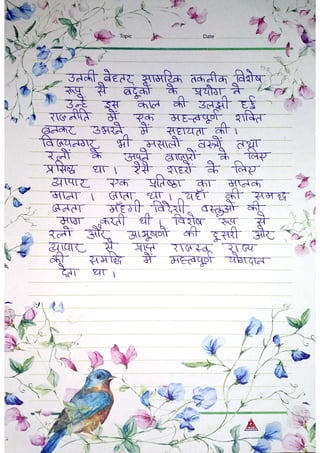 Topic Date
उनकी बेहतर सामरिक तकनीक विशेष
रूप से बंदूकों के प्रयोग ने
उन्हें इस काल की उलझी हुई
राजनीति में एक महत्वपूर्ण शक्ति
बनकर उभरने में सहायता की।
विजयनगर भी मसालों वस्त्रों तथा
रत्नों के अपने बाजारों के लिए
प्रसिद्ध था। ऐसे शहरों के लिए
व्यापार एक प्रतिष्ठा का मानक
माना। जाता था। यहाँ की समृद्ध
जनता महंगी विदेशी वस्तुओं की
मांग करती थी। विशेष रूप से
रत्नों और आभूषणों की दूसरी ओर
व्यापार से प्राप्त राजस्क राज्य
की समृद्धि में महत्वपूर्ण योगदान
देता था।